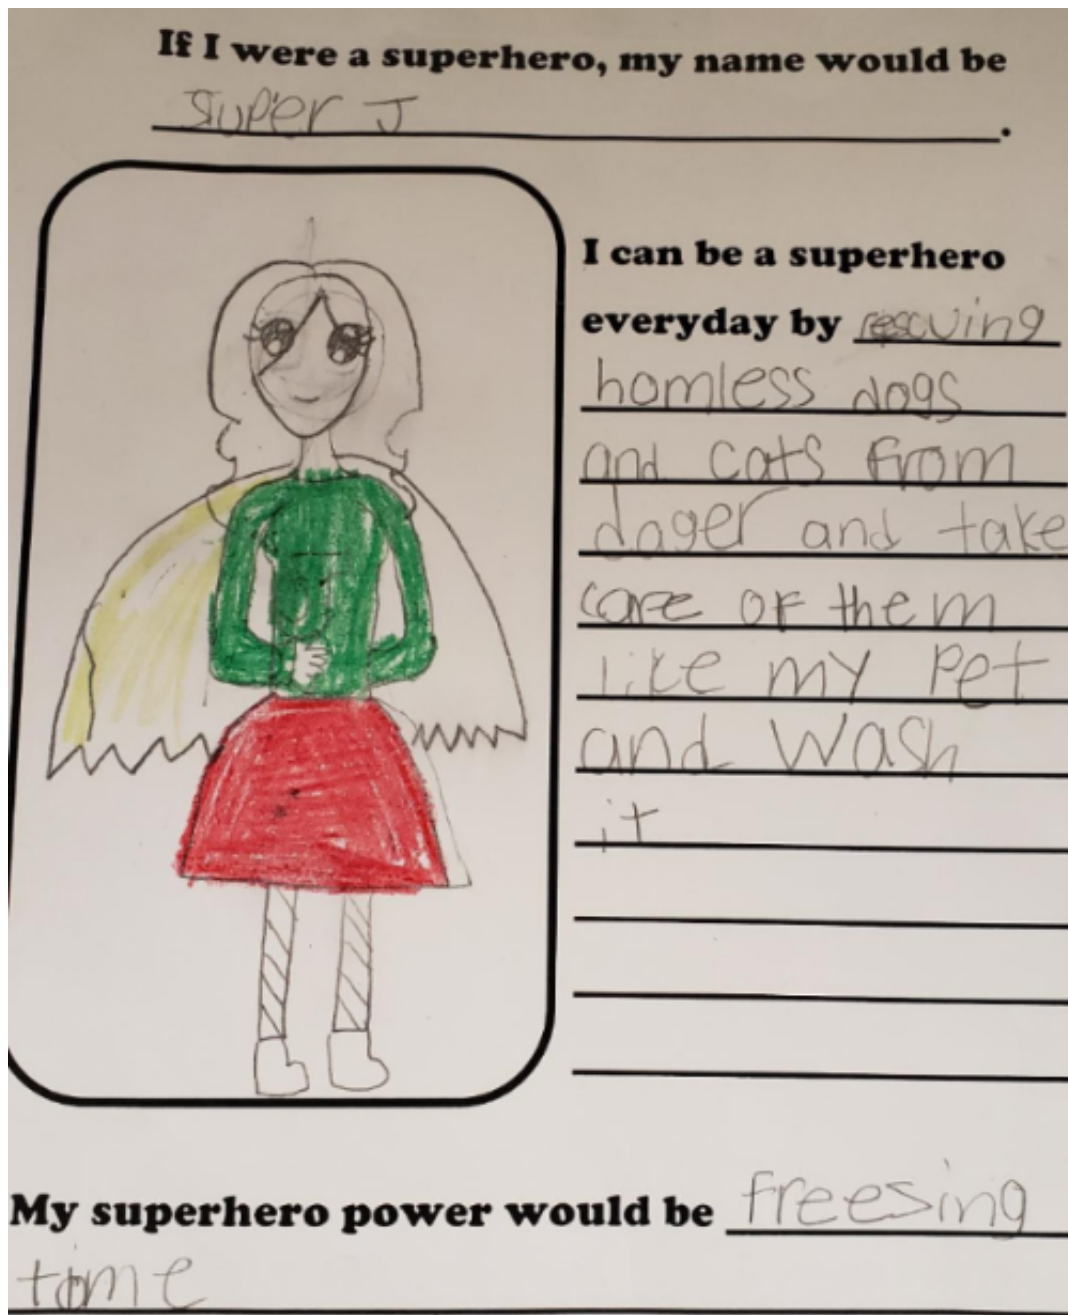 If I were a superhero, my name would be
Super J.
I can be a superhero
everyday by rescuing
homless dogs
and cats from
dager and take
care of them
like my Pet
and wash
it
My superhero power would be freesing
time